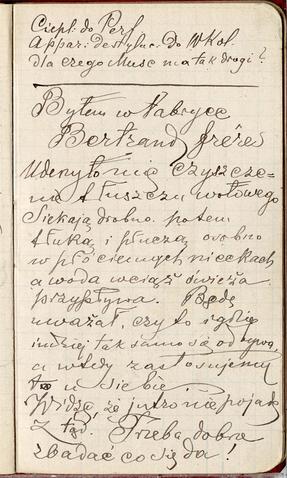 Ciepł. do Perf.
Appar. destyluc. Do W Kol.
dla czego Musc ma tak drogi?
Byłem w fabryce
Bertrand frères
Uderzyło mię czyszcze-
nie tłuszczu wołowego
Siekają drobno. potem
tłuką i płuczą osobno
w płóciennych nieckach
a woda wciąż świeża
przypływa. Będę
uważał, czy to i gdzie
indziej tak samo się odbywa,
a wtedy zastosujemy
to u siebie.
Widzę, że jutro nie pojadę
z tąd. Trzeba dobrze
zbadać co się da!